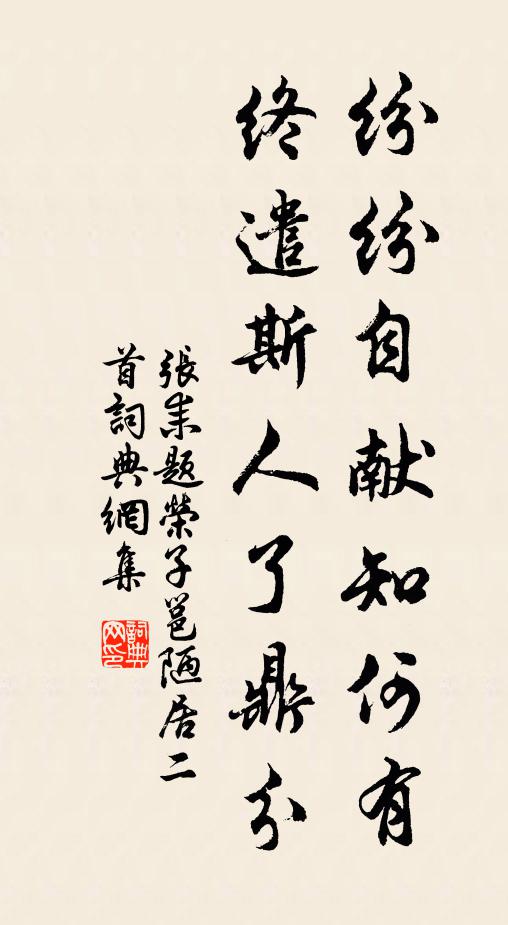 紛紛自献知何有
終遣斯人了鼎分
張耒題榮子邕陋居二
首詞典網集
詞典
网印